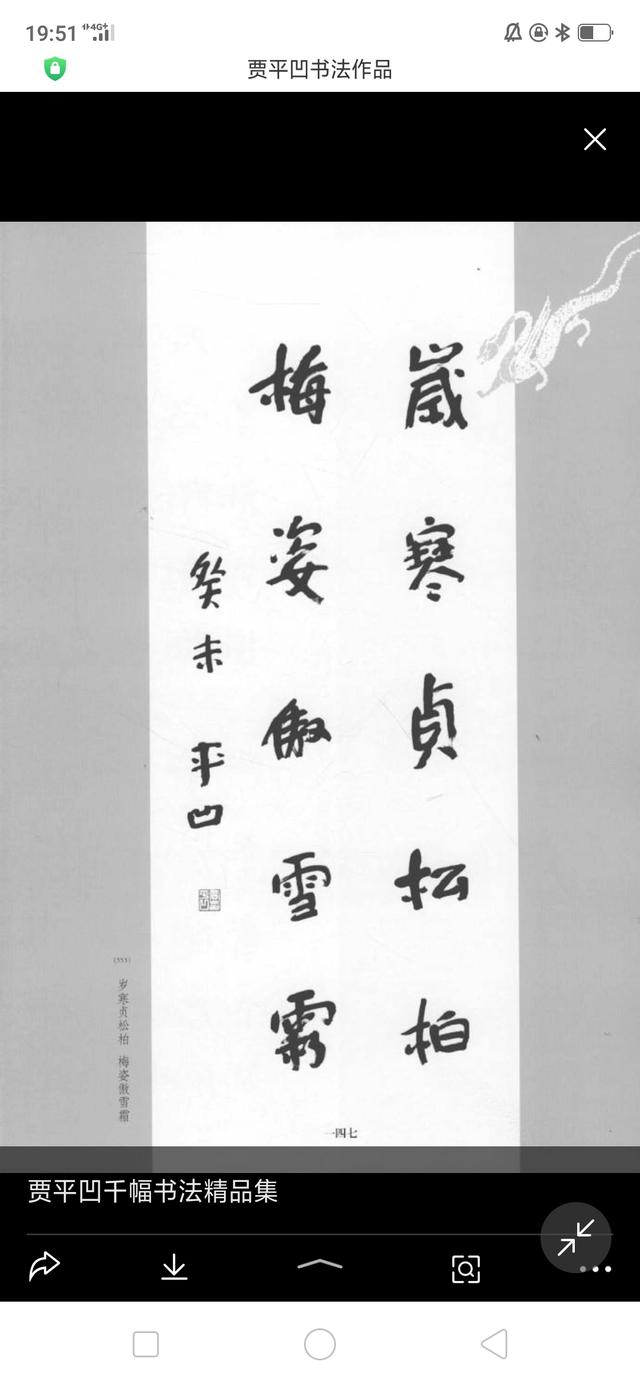 19:51
4G+
贾平凹书法作品
歲寒貞松柏
梅姿傲雪霜
癸未 平凹
(555)
岁寒贞松柏 梅姿傲雪霜
一四七
贾平凹千幅书法精品集